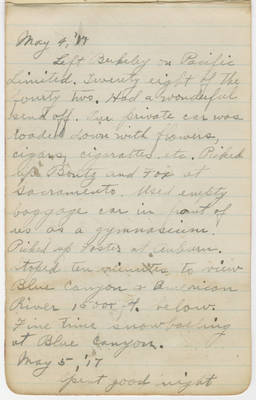 May 4, '17
Left Berkeley on Pacific
Limited. Twenty eight of the
fourty two. Had a wonderful
send off. Our private car was
loaded down with flowers,
cigars, cigarettes etc. Picked
up Bontz and Fox at
Sacramento. Used empty
baggage car in front of
us as a gymnasium.
Picked up Foster at Auburn.
stoped ten minutes to view
Blue Canyon & American
River 1500 ft. below.
Fine time snowballing
at Blue Canyon.
May 5, '17
Spent good night